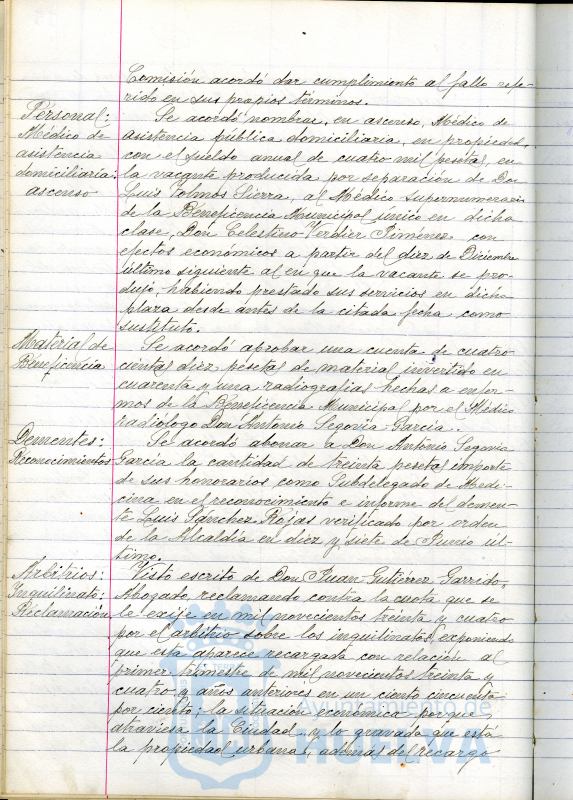 Comisión acordó dar cumplimiento al fallo refe-
rido en sus propios términos.
Personal:
Médico de
asistencia
domiciliaria:
ascenso
Se acordó nombrar, en ascenso, Médico de
asistencia pública domiciliaria, en propiedad,
con el sueldo anual de cuatro mil pesetas, en
la vacante producida por separación de Don
Luis Tolmos Sierra, al Médico Supernumerario
de la Beneficencia Municipal único en dicha
clase, Don Celestino Verdier Jiménez con
efectos económicos a partir del diez de Diciembre
último siguiente al en que la vacante se pro-
dujo, habiendo prestado sus servicios en dicha
plaza desde antes de la citada fecha como
sustituto.
Material de
Beneficencia
Se acordó aprobar una cuenta de cuatro-
cientas diez pesetas de material invertido en
cuarenta y una radiografías hechas a enfer-
mos de la Beneficencia Municipal por el Médico
radiólogo Don Antonio Segovia García.
Dementes:
Reconocimientos
Se acordó abonar a Don Antonio Segovia
García la cantidad de treinta pesetas importe
de sus honorarios como Subdelegado de Medi-
cina en el reconocimiento e informe del demen-
te Luis Sánchez Rojas verificado por orden
de la Alcaldía en diez y siete de Junio úl-
timo.
Arbitrios:
Inquilinato:
Reclamación
Visto escrito de Don Juan Gutiérrez Garrido,
Abogado, reclamando contra la cuota que se
le exije en mil novecientos treinta y cuatro
por el arbitrio sobre los inquilinatos, exponiendo
que esta aparece recargada con relación al
primer trimestre de mil novecientos treinta y
cuatro y años anteriores en un ciento cincuenta
por ciento; la situación económica porque
atraviesa la Ciudad, y lo gravada que está
la propiedad urbana, además del recargo
Ayuntamiento de
HUELVA